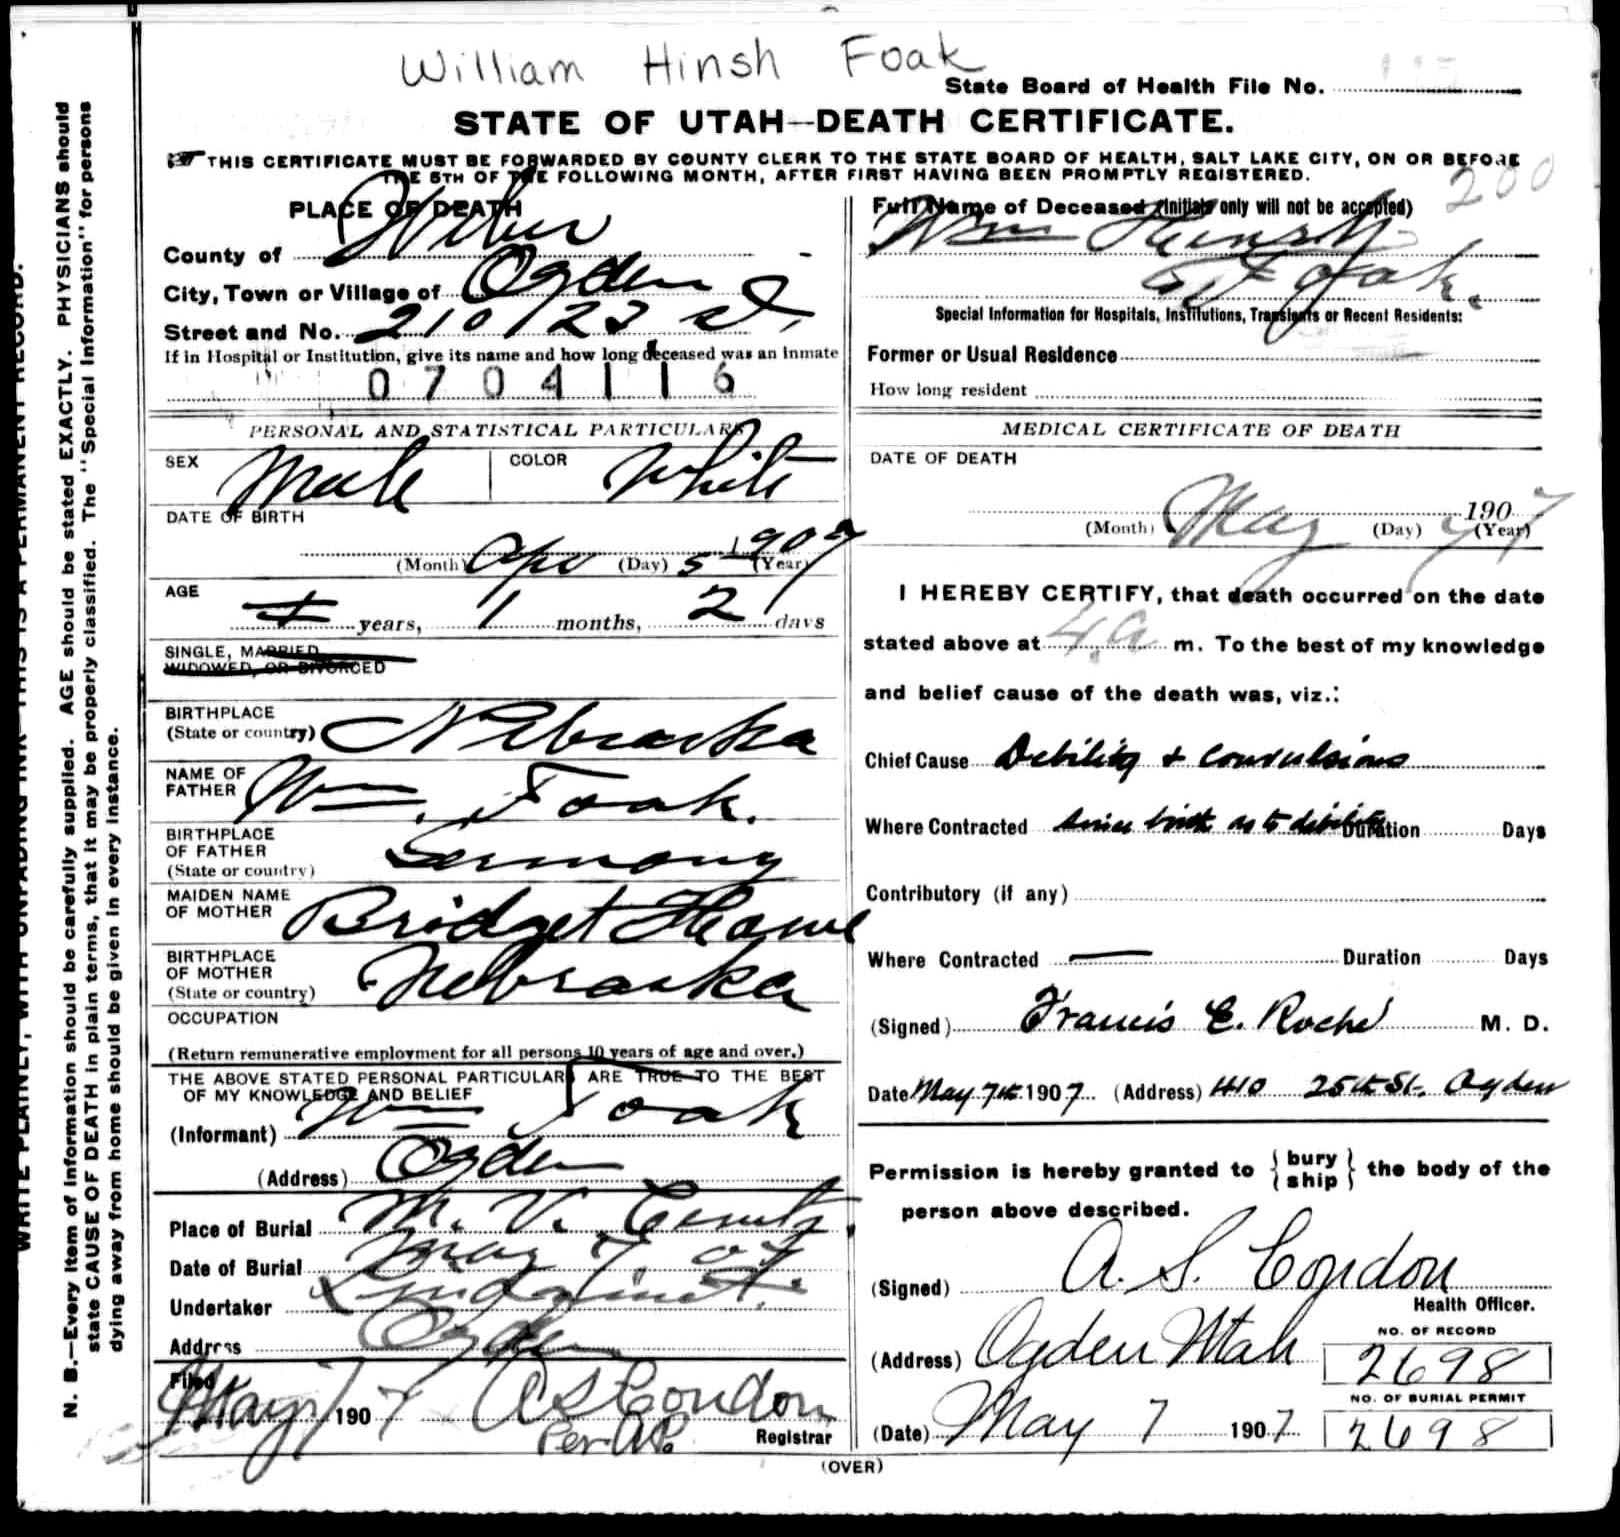 William Hinsh Foak
State Board of Health File No.
STATE OF UTAH—DEATH CERTIFICATE.
THIS CERTIFICATE MUST BE FORWARDED BY COUNTY CLERK TO THE STATE BOARD OF HEALTH, SALT LAKE CITY, ON OR BEFORE
THE 5TH OF THE FOLLOWING MONTH, AFTER FIRST HAVING BEEN PROMPTLY REGISTERED.
200
WRITE PLAINLY, WITH UNFADING INK—THIS IS A PERMANENT RECORD.
N. B.—Every item of Information should be carefully supplied. AGE should be stated EXACTLY. PHYSICIANS should
state CAUSE OF DEATH in plain terms, that it may be properly classified. The "Special Information" for persons
dying away from home should be given in every instance.
PLACE OF DEATH
County of Weber
City, Town or Village of Ogden
Street and No. 210 / 23 St.
If in Hospital or Institution, give its name and how long deceased was an Inmate
0704116
PERSONAL AND STATISTICAL PARTICULARS
SEX Male COLOR White
DATE OF BIRTH
(Month) Apr (Day) 5 (Year) 1907
AGE
years, 1 months, 2 days
SINGLE, MARRIED
WIDOWED, OR DIVORCED
BIRTHPLACE
(State or country) Nebraska
NAME OF
FATHER Wm. Foak.
BIRTHPLACE
OF FATHER
(State or country) Germany
MAIDEN NAME
OF MOTHER Bridget
BIRTHPLACE
OF MOTHER
(State or country) Nebraska
OCCUPATION
(Return remunerative employment for all persons 10 years of age and over.)
THE ABOVE STATED PERSONAL PARTICULARS ARE TRUE TO THE BEST
OF MY KNOWLEDGE AND BELIEF
(Informant) Wm Foak
(Address) Ogden
Place of Burial M. V. Cemty.
Date of Burial May 7, 07
Undertaker
Address Ogden
Filed May 7 1907 A S Condon
Per A.P. Registrar
Full Name of Deceased (Initials only will not be accepted)
Wm Hinsh
Foak.
Special Information for Hospitals, Institutions, Transients or Recent Residents:
Former or Usual Residence
How long resident
MEDICAL CERTIFICATE OF DEATH
DATE OF DEATH
(Month) May (Day) 7 1907 (Year)
I HEREBY CERTIFY, that death occurred on the date
stated above at 4.a m. To the best of my knowledge
and belief cause of the death was, viz.:
Chief Cause Debility + Convulsions
Where Contracted since birth as to debility Duration Days
Contributory (if any)
Where Contracted — Duration Days
(Signed) Francis E. Roche M. D.
Date May 7th 1907. (Address) 410 25th St. Ogden
Permission is hereby granted to { bury ship } the body of the
person above described.
(Signed) A. S. Condon
Health Officer.
(Address) Ogden Utah
NO. OF RECORD
2698
NO. OF BURIAL PERMIT
2698
(Date) May 7 1907
(OVER)